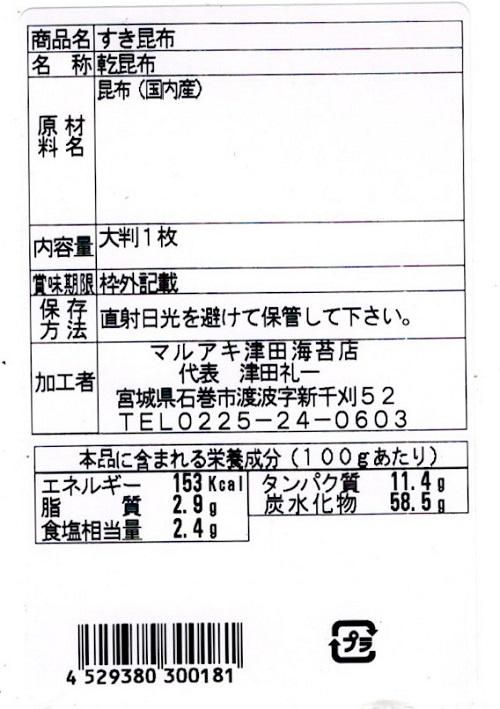 商品名 すき昆布
名 称 乾昆布
原材料名 昆布（国内産）
内容量 大判１枚
賞味期限 枠外記載
保存方法 直射日光を避けて保管して下さい。
加工者 マルアキ津田海苔店
代表 津田礼一
宮城県石巻市渡波字新千刈５２
ＴＥＬ０２２５－２４－０６０３
本品に含まれる栄養成分（１００ｇあたり）
エネルギー 153 Kcal タンパク質 11.4 g
脂 質 2.9 g 炭水化物 58.5 g
食塩相当量 2.4 g
プラ
4 529380 300181